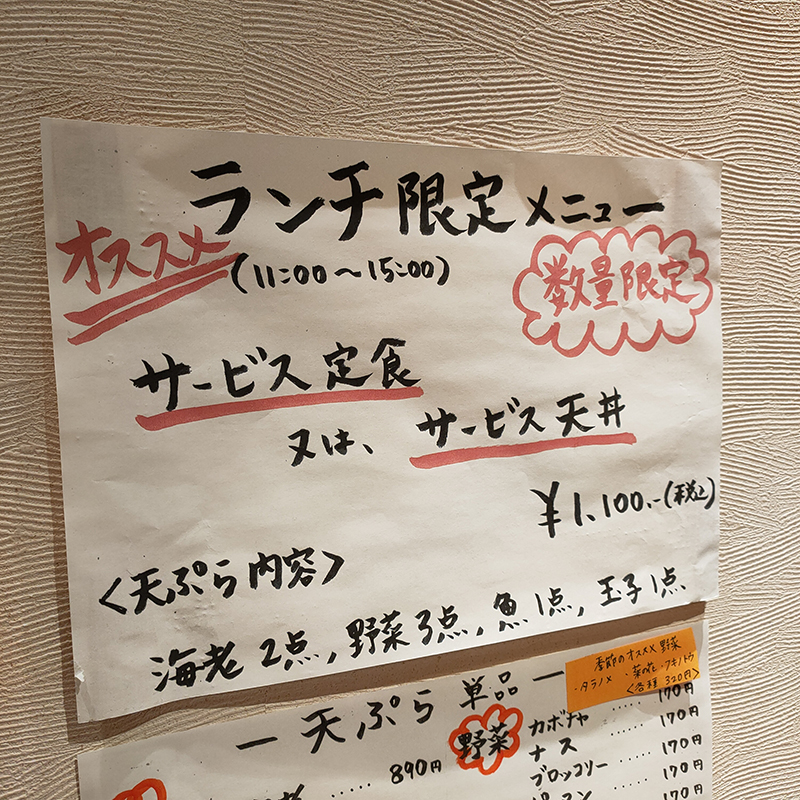 ランチ限定メニュー
オススメ
(11:00～15:00)
数量限定
サービス定食
又は、サービス天丼
¥1,100.-(税込)
<天ぷら内容>
海老2点,野菜3点,魚1点,玉子1点
季節のオススメ野菜
・タラノメ ・菜の花・フキノトウ
<各種 320円>
ー天ぷら単品ー
野菜
カボチャ ‥‥ 170円
‥‥ 890円
ナス ‥‥ 170円
ブロッコリー ‥‥ 170円
170円